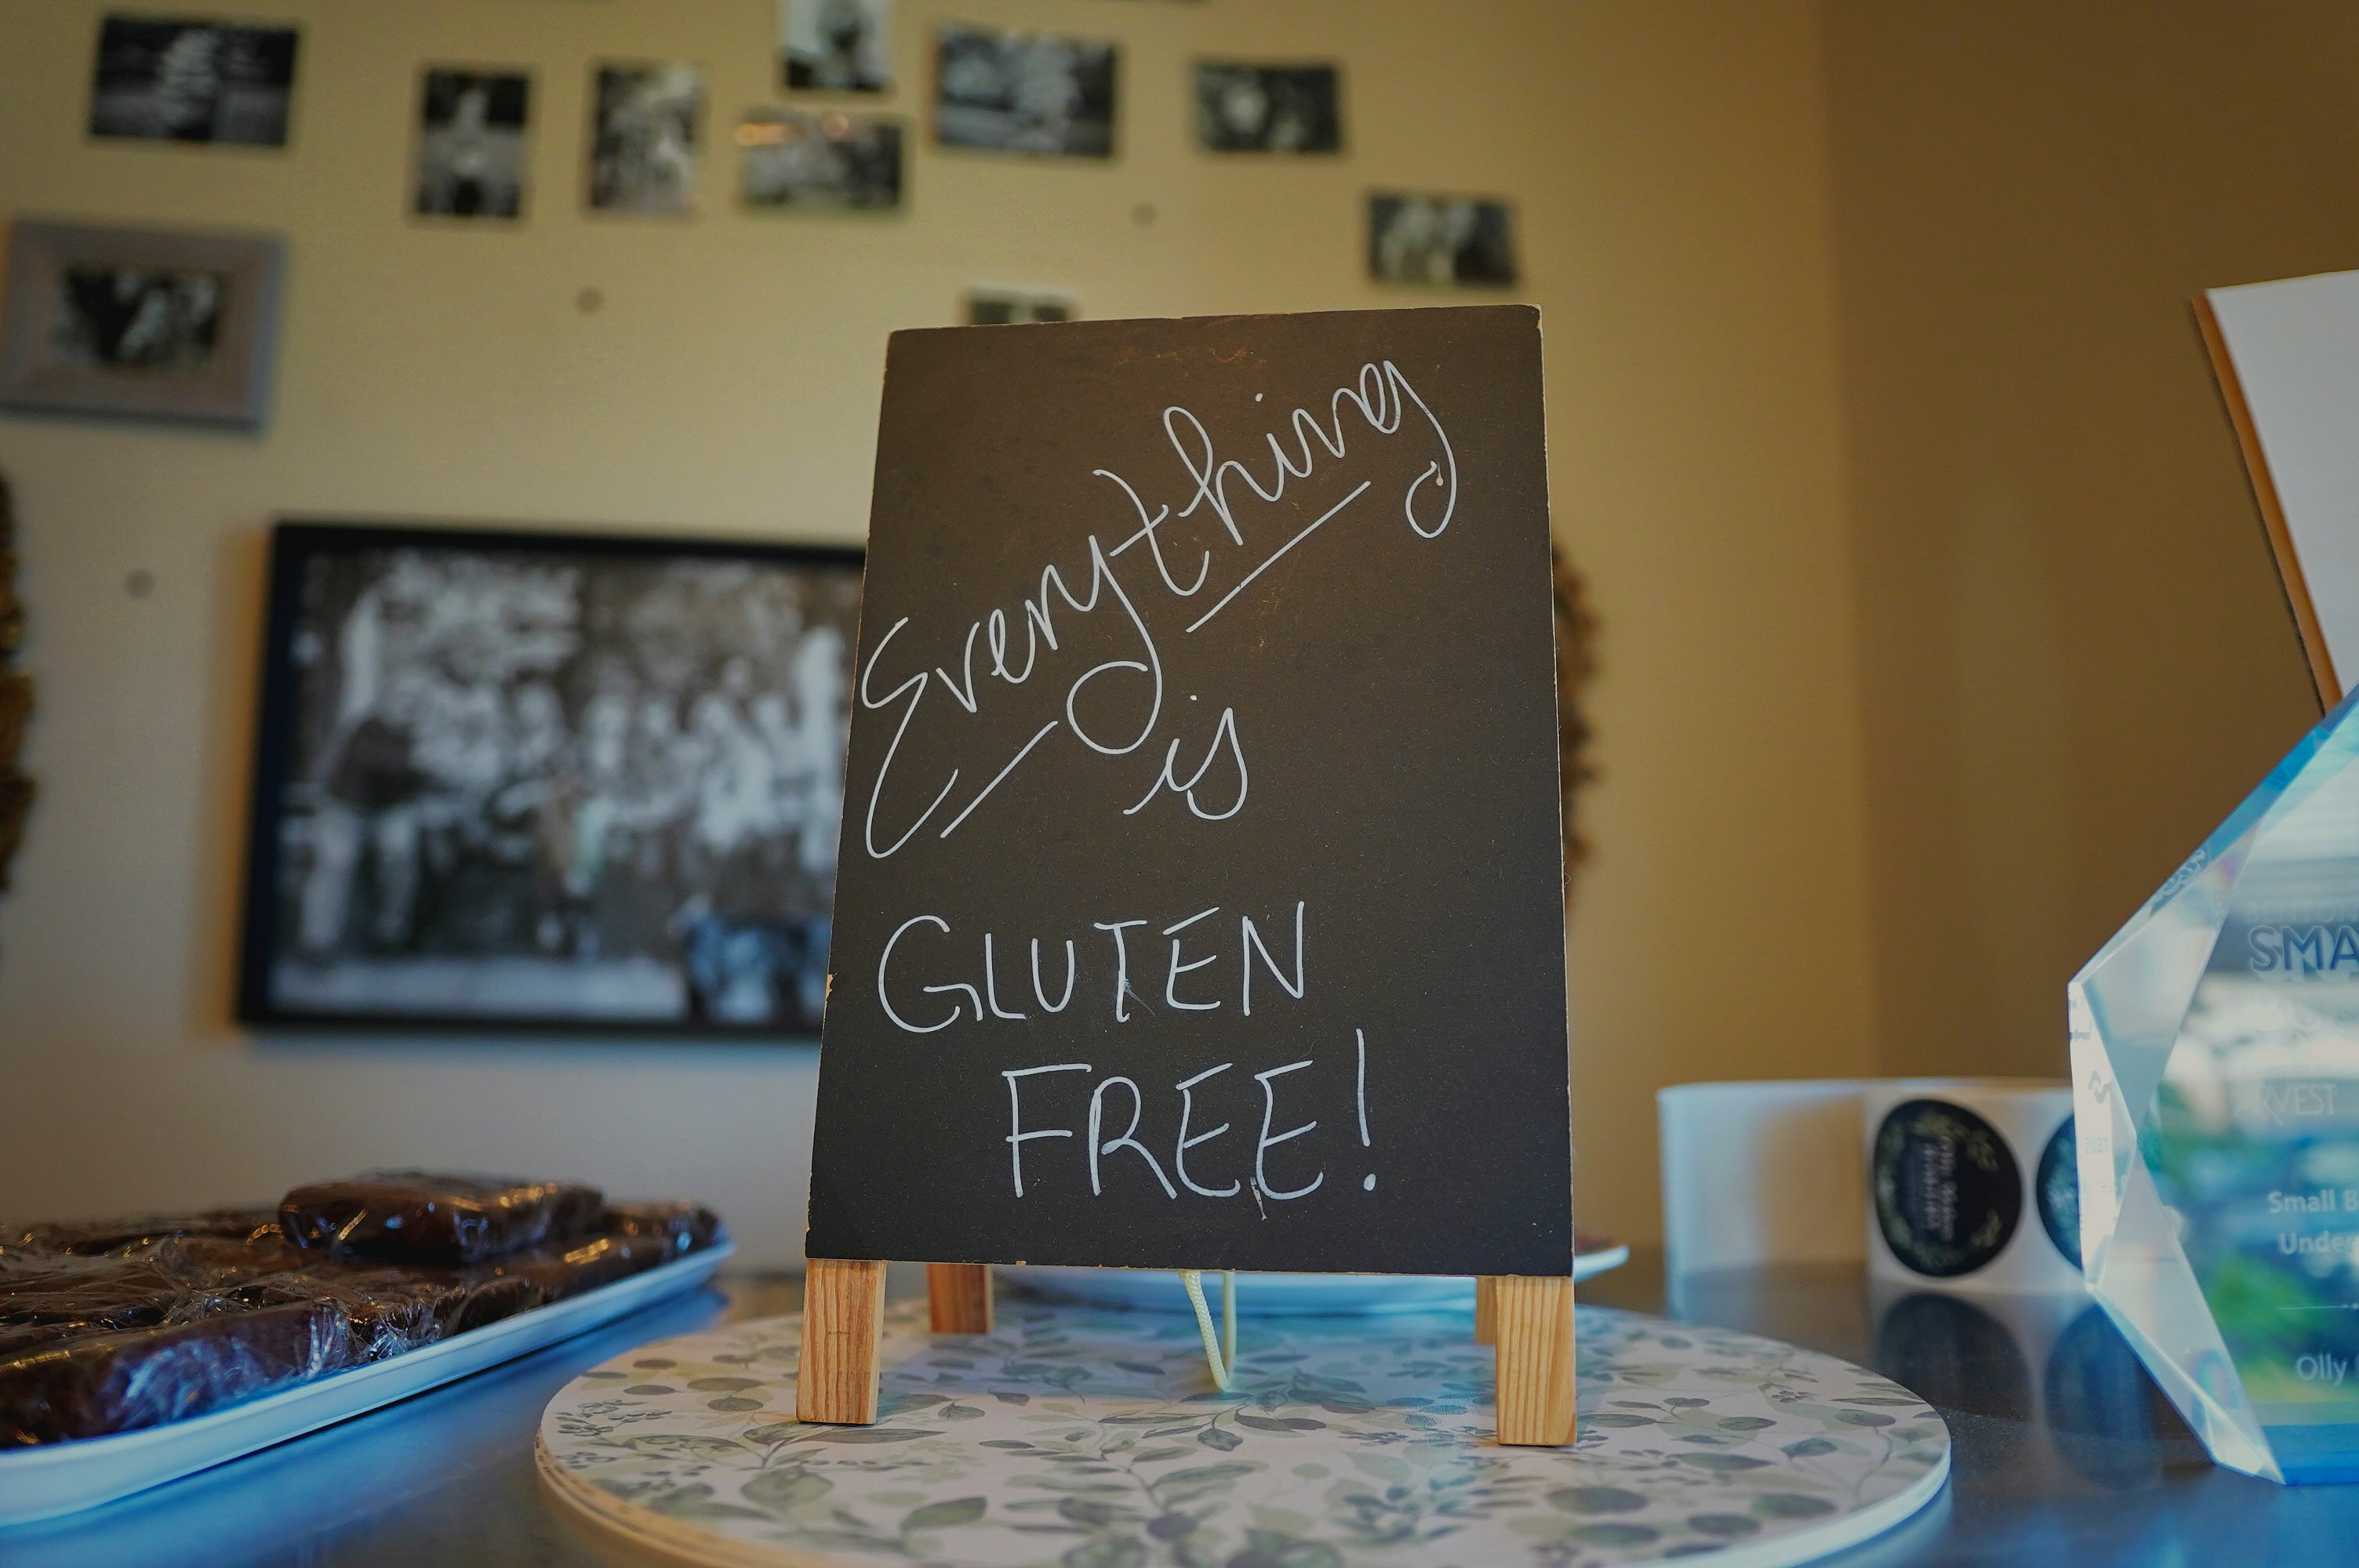 Everything
is
GLUTEN
FREE!
SMA
ARVEST
2021
Small B
Under
Olly